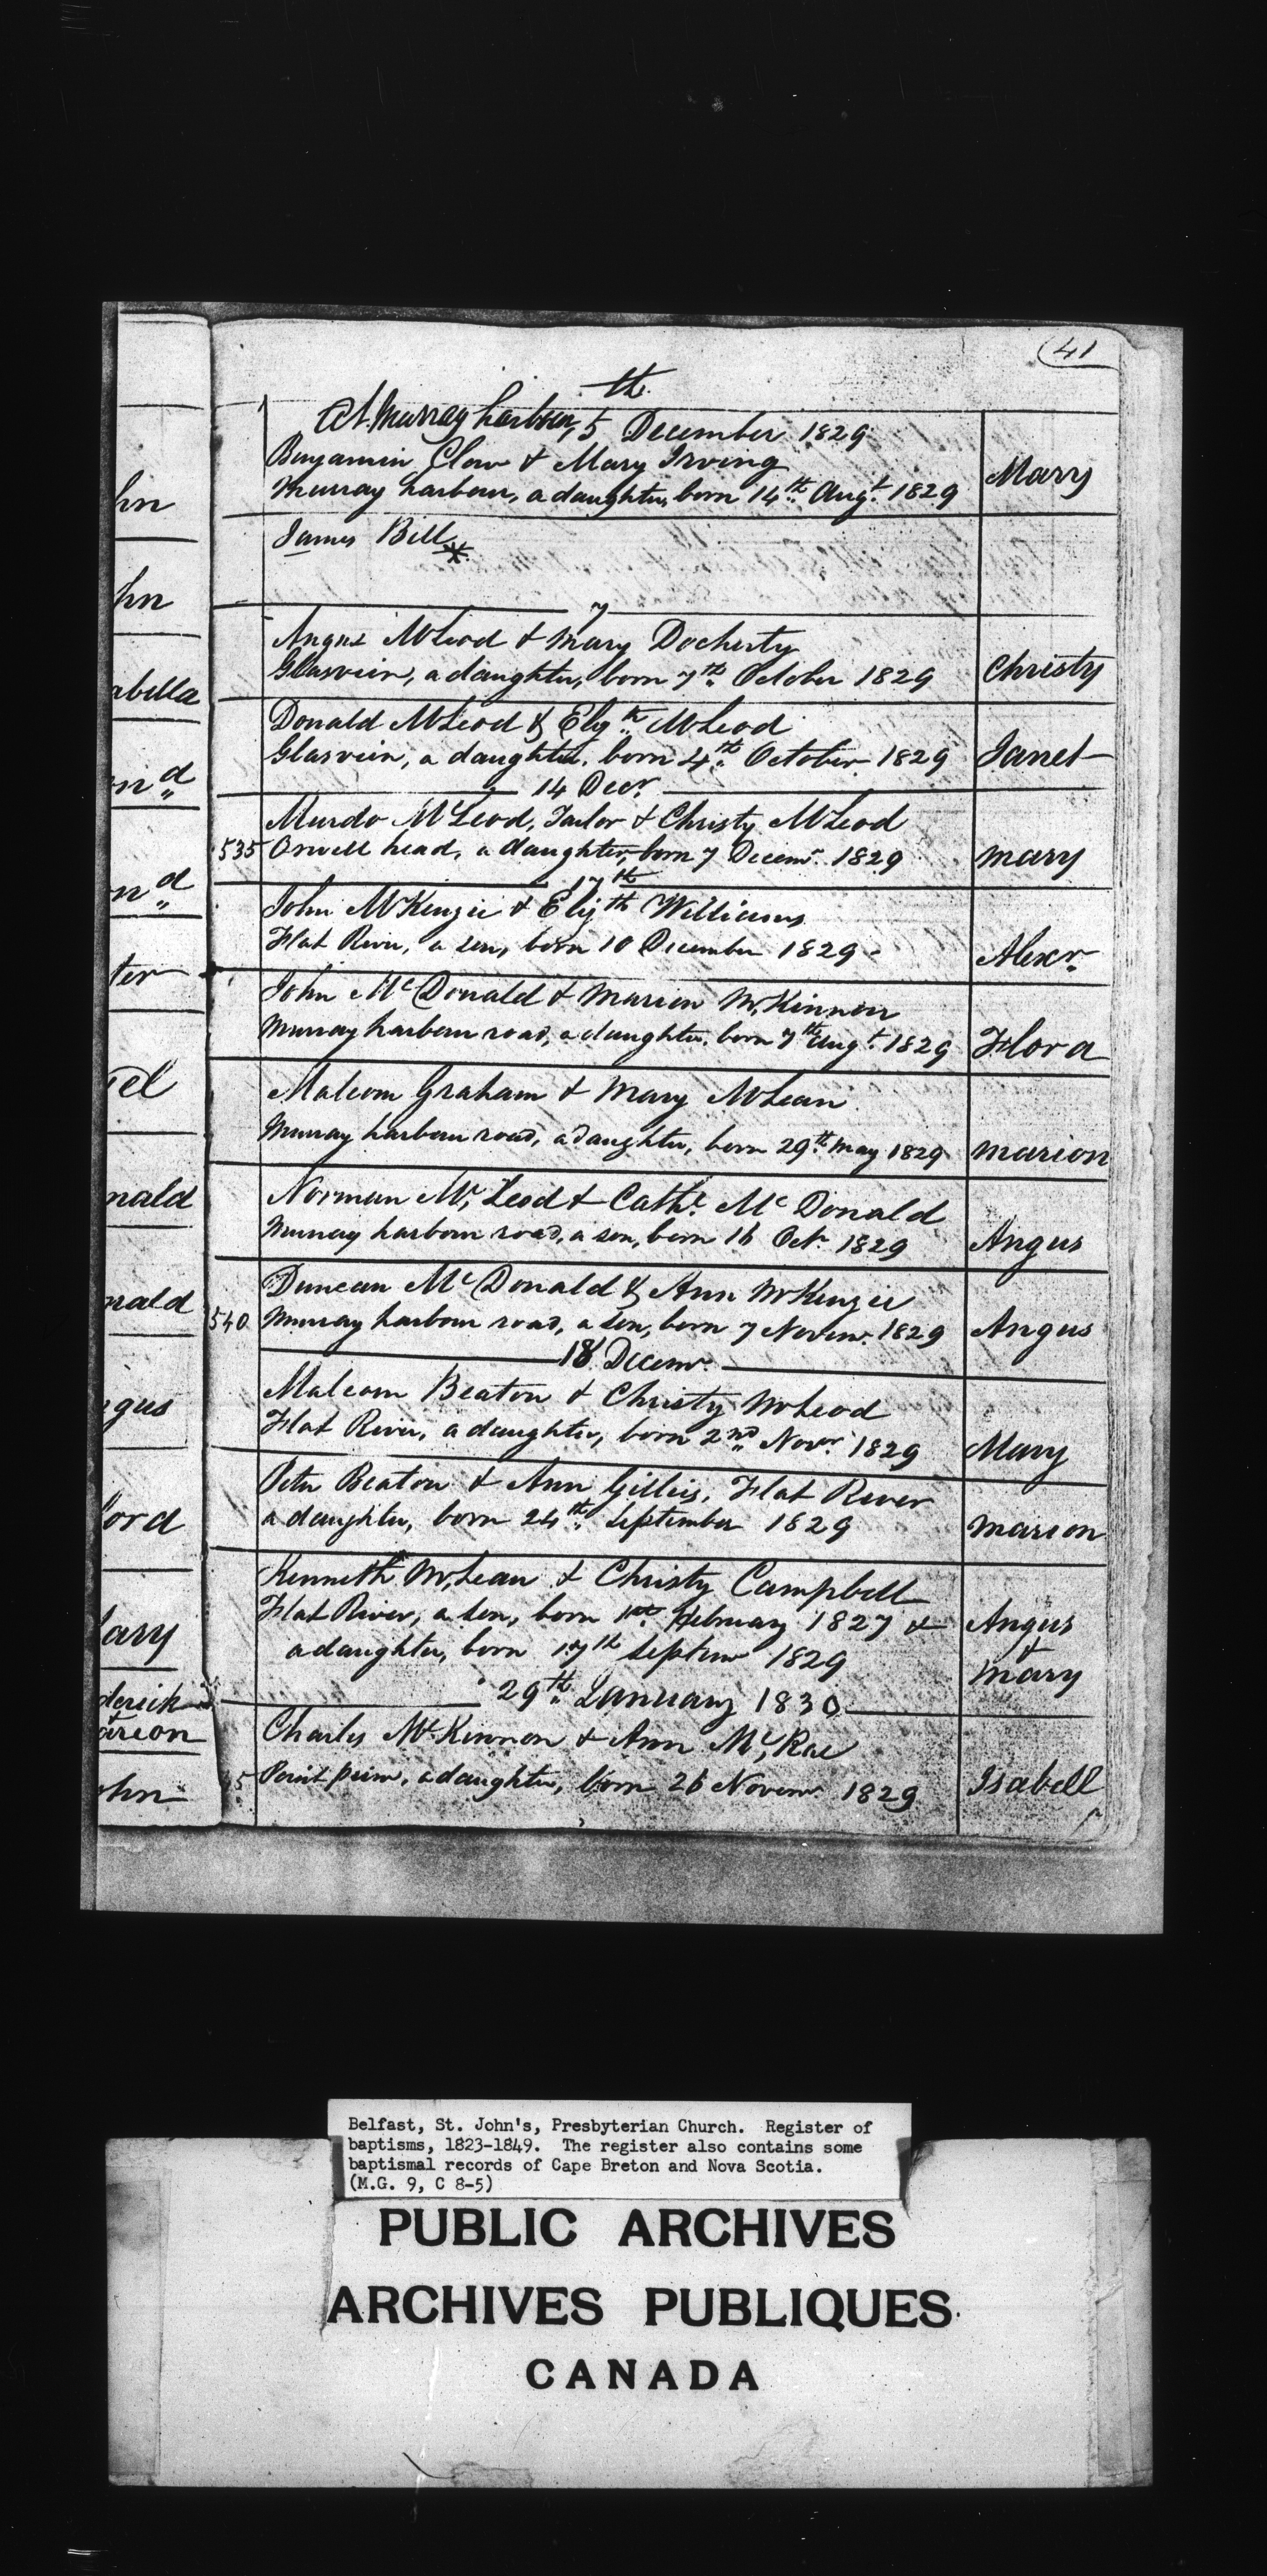 41
At Murray harbour, 5th December 1829
Benjamin Clow & Mary Irving
Murray harbour, a daughter, born 14th Augt. 1829 Mary
James Bill *
7
Angus McLeod & Mary Docherty
Glasvein, a daughter, born 7th October 1829 Christy
Donald McLeod & Elizth McLeod
Glasvein, a daughter, born 4th October 1829 Janet
14 Decr.
Murdo McLeod, Tailor & Christy McLeod
535 Orwell head, a daughter, born 7 Decemr. 1829 Mary
17th
John McKenzie & Elizth Williams
Flat River, a son, born 10 December 1829 Alexr.
John McDonald & Marion McKinnon
Murray harbour road, a daughter, born 7th Augt. 1829 Flora
Malcom Graham & Mary McLean
Murray harbour road, a daughter, born 29th May 1829 Marion
Norman McLeod & Cathe. McDonald
Murray harbour road, a son, born 16 Octr. 1829 Angus
Duncan McDonald & Ann McKenzie
540 Murray harbour road, a son, born 7 Novemr. 1829 Angus
18 Decemr.
Malcom Beaton & Christy McLeod
Flat River, a daughter, born 2nd Novr. 1829 Mary
Peter Beaton & Ann Gillies, Flat River
a daughter, born 24th September 1829 Marion
Kenneth McLean & Christy Campbell
Flat River, a son, born 1st February 1827 & Angus
a daughter, born 17th Septemr 1829 & Mary
29th January 1830
Charles McKinnon & Ann McRae
5 Point prim, a daughter, born 26 Novemr. 1829 Isabell
hn
hn
abella
nd
nd
ter
el
nald
nald
gus
ford
Mary
derick
&
arion
ohn
Belfast, St. John's, Presbyterian Church. Register of
baptisms, 1823-1849. The register also contains some
baptismal records of Cape Breton and Nova Scotia.
(M.G. 9, C 8-5)
PUBLIC ARCHIVES
ARCHIVES PUBLIQUES
CANADA